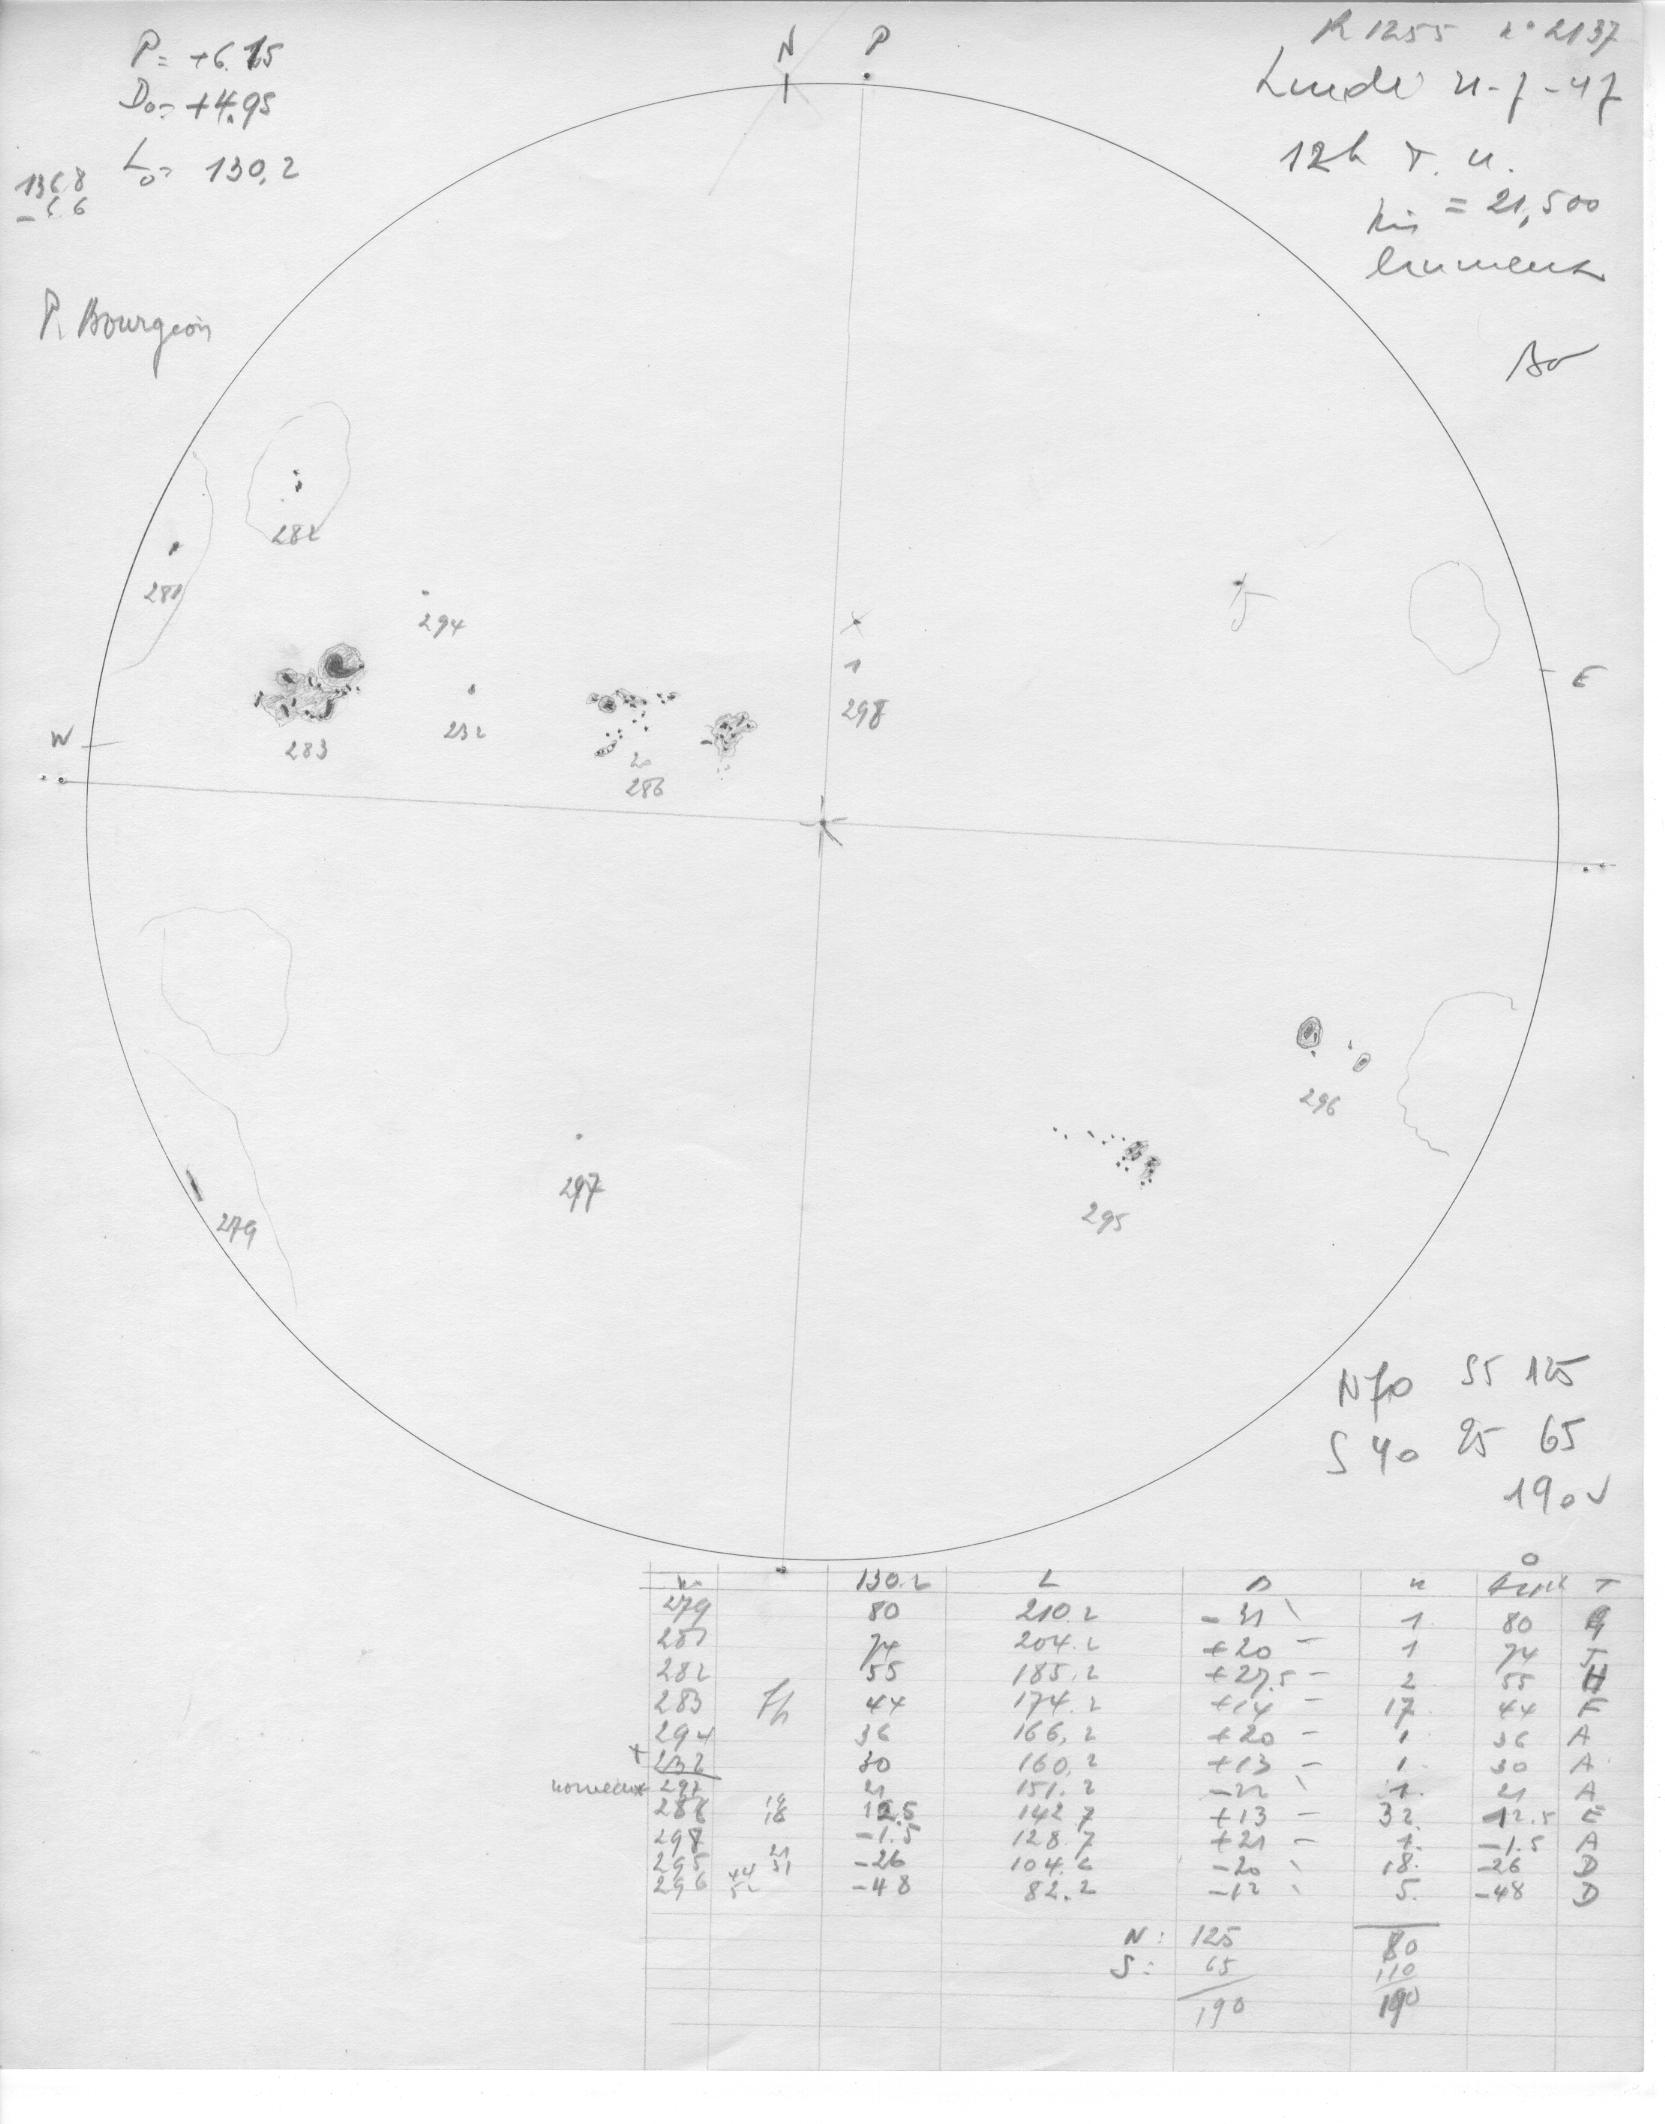 N P
P = +6.15
D₀ = +4.95
L₀ = 130,2
136.8
- 6.6
P. Bourgeois
R 1255 n° 2137
Lundi 21-7-47
12h T. U.
= 21,500
Bo
282
281
294
283
232
286
1
298
W
E
296
295
297
279
N 70 55 125
S 40 25 65
190
130.2 L n T
279 80 210.2 -31 1 80
281 74 204.2 +20 - 1 74 J
282 55 185.2 +27,5 - 2 55 H
283 44 174.2 +14 - 17 44 F
294 36 166,2 +20 - 1 36 A
+ 232 30 160,2 +13 - 1 30 A
nouveau 297 21 151.2 -22 1 21 A
286 18 12.5 142.7 +13 - 32 12.5 E
298 -1.5 128.7 +21 - 1 -1.5 A
295 -26 104.2 -20 18 -26 D
296 -48 82.2 -12 5 -48 D
N: 125 80
S: 65 110
190 190